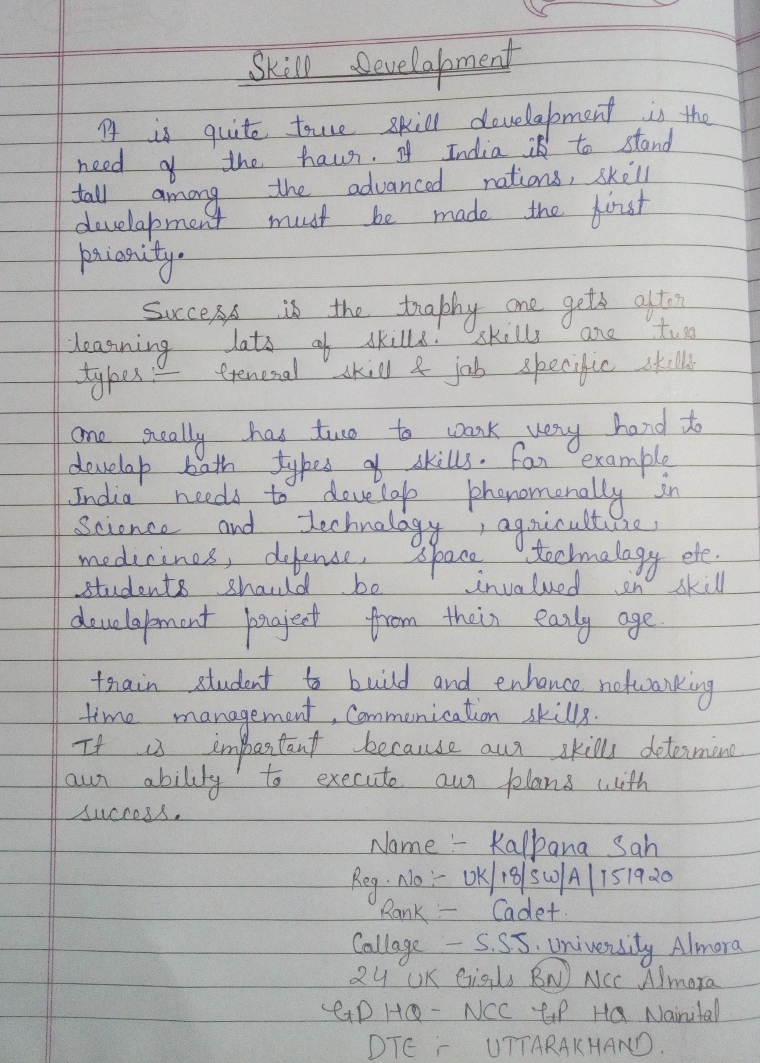 Skill Development
It is quite true skill development is the
need of the hour. If India is to stand
tall among the advanced nations, skill
development must be made the first
priority.
Success is the trophy one gets after
learning lots of skills. skills are two
types:- General skill & job specific skills
One really has two to work very hard to
develop both types of skills. For example
India needs to develop phenomenally in
Science and technology, agriculture,
medicines, defense, space technology etc.
students should be involved in skill
development project from their early age.
train student to build and enhance networking
time management, Communication skills.
It is important because our skills determine
our ability to execute our plans with
success.
Name :- Kalpana Sah
Reg. No :- UK/18/SW/A/151920
Rank :- Cadet.
Collage - S.S.J. University Almora
24 UK Girls BN NCC Almora
GD HQ - NCC GP HQ Nainital
DTE :- UTTARAKHAND.